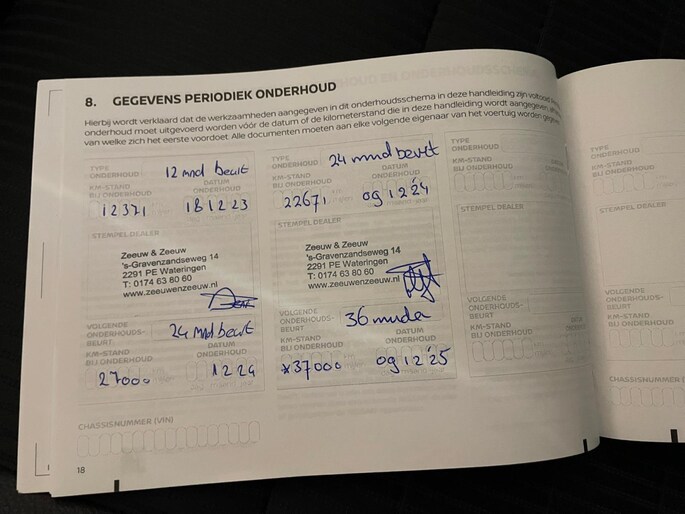 8. GEGEVENS PERIODIEK ONDERHOUD
Hierbij wordt verklaard dat de werkzaamheden aangegeven in dit onderhoudsschema in deze handleiding zijn
onderhoud moet uitgevoerd worden vóór de datum of de kilometerstand die in deze handleiding wordt aangegeven,
van welke zich het eerste voordoet. Alle documenten moeten aan elke volgende eigenaar van het voertuig worden
TYPE
ONDERHOUD
12 mnd beurt
KM-STAND
BIJ ONDERHOUD
DATUM
ONDERHOUD
12371
18 12 23
STEMPEL DEALER
Zeeuw & Zeeuw
's-Gravenzandseweg 14
2291 PE Wateringen
T: 0174 63 80 60
www.zeeuwenzeeuw.nl
VOLGENDE
ONDERHOUDS-
BEURT
24 mnd beurt
KM-STAND
BIJ ONDERHOUD
DATUM
ONDERHOUD
27000
12 24
CHASSISNUMMER (VIN)
TYPE
ONDERHOUD
24 mnd beurt
KM-STAND
BIJ ONDERHOUD
DATUM
ONDERHOUD
22671
09 12 '24
STEMPEL DEALER
Zeeuw & Zeeuw
's-Gravenzandseweg 14
2291 PE Wateringen
T: 0174 63 80 60
www.zeeuwenzeeuw.nl
VOLGENDE
ONDERHOUDS-
BEURT
36 mnd
KM-STAND
BIJ ONDERHOUD
DATUM
ONDERHOUD
*37000
09 12 '25
TYPE
ONDERHOUD
KM-STAND
BIJ ONDERHOUD
STEMPEL DEALER
VOLGENDE
ONDERHOUDS-
BEURT
KM-STAND
BIJ ONDERHOUD
18
TYPE
ONDERHOUD
KM-STAND
BIJ ONDERHOUD
STEMPEL DEALER
VOLGENDE
ONDERHOUDS-
BEURT
KM-STAND
BIJ ONDERHOUD
CHASSISNUMMER